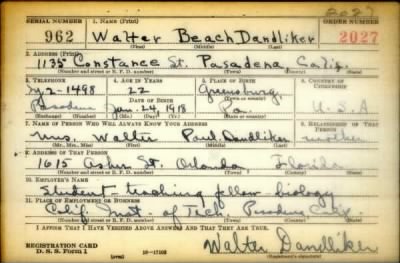 2027
SERIAL NUMBER 1. NAME (Print) ORDER NUMBER
962 Walter Beach Dandliker 2027
(First) (Middle) (Last)
2. ADDRESS (Print)
1135 Constance St. Pasadena Calif.
(Number and street or R. F. D. number) (Town) (County) (State)
3. TELEPHONE 4. AGE IN YEARS 5. PLACE OF BIRTH 6. COUNTRY OF CITIZENSHIP
2-1498 22 Greensburg
DATE OF BIRTH (Town or county)
Pasadena Jan. 24, 1918 Pa. U.S.A
(Exchange) (Number) (Mo.) (Day) (Yr.) (State or country)
7. NAME OF PERSON WHO WILL ALWAYS KNOW YOUR ADDRESS 8. RELATIONSHIP OF THAT PERSON
Mrs. Walter Paul Dandliker mother
(Mr., Mrs., Miss) (First) (Middle) (Last)
9. ADDRESS OF THAT PERSON
1615 St. Orlando Florida
(Number and street or R. F. D. number) (Town) (County) (State)
10. EMPLOYER'S NAME
Student teaching fellow biology
11. PLACE OF EMPLOYMENT OR BUSINESS
Calif. Inst. of Tech. Pasadena Calif.
(Number and street or R. F. D. number) (Town) (County) (State)
I AFFIRM THAT I HAVE VERIFIED ABOVE ANSWERS AND THAT THEY ARE TRUE.
REGISTRATION CARD
D. S. S. Form 1 16-17105 Walter Dandliker
(Registrant's signature)